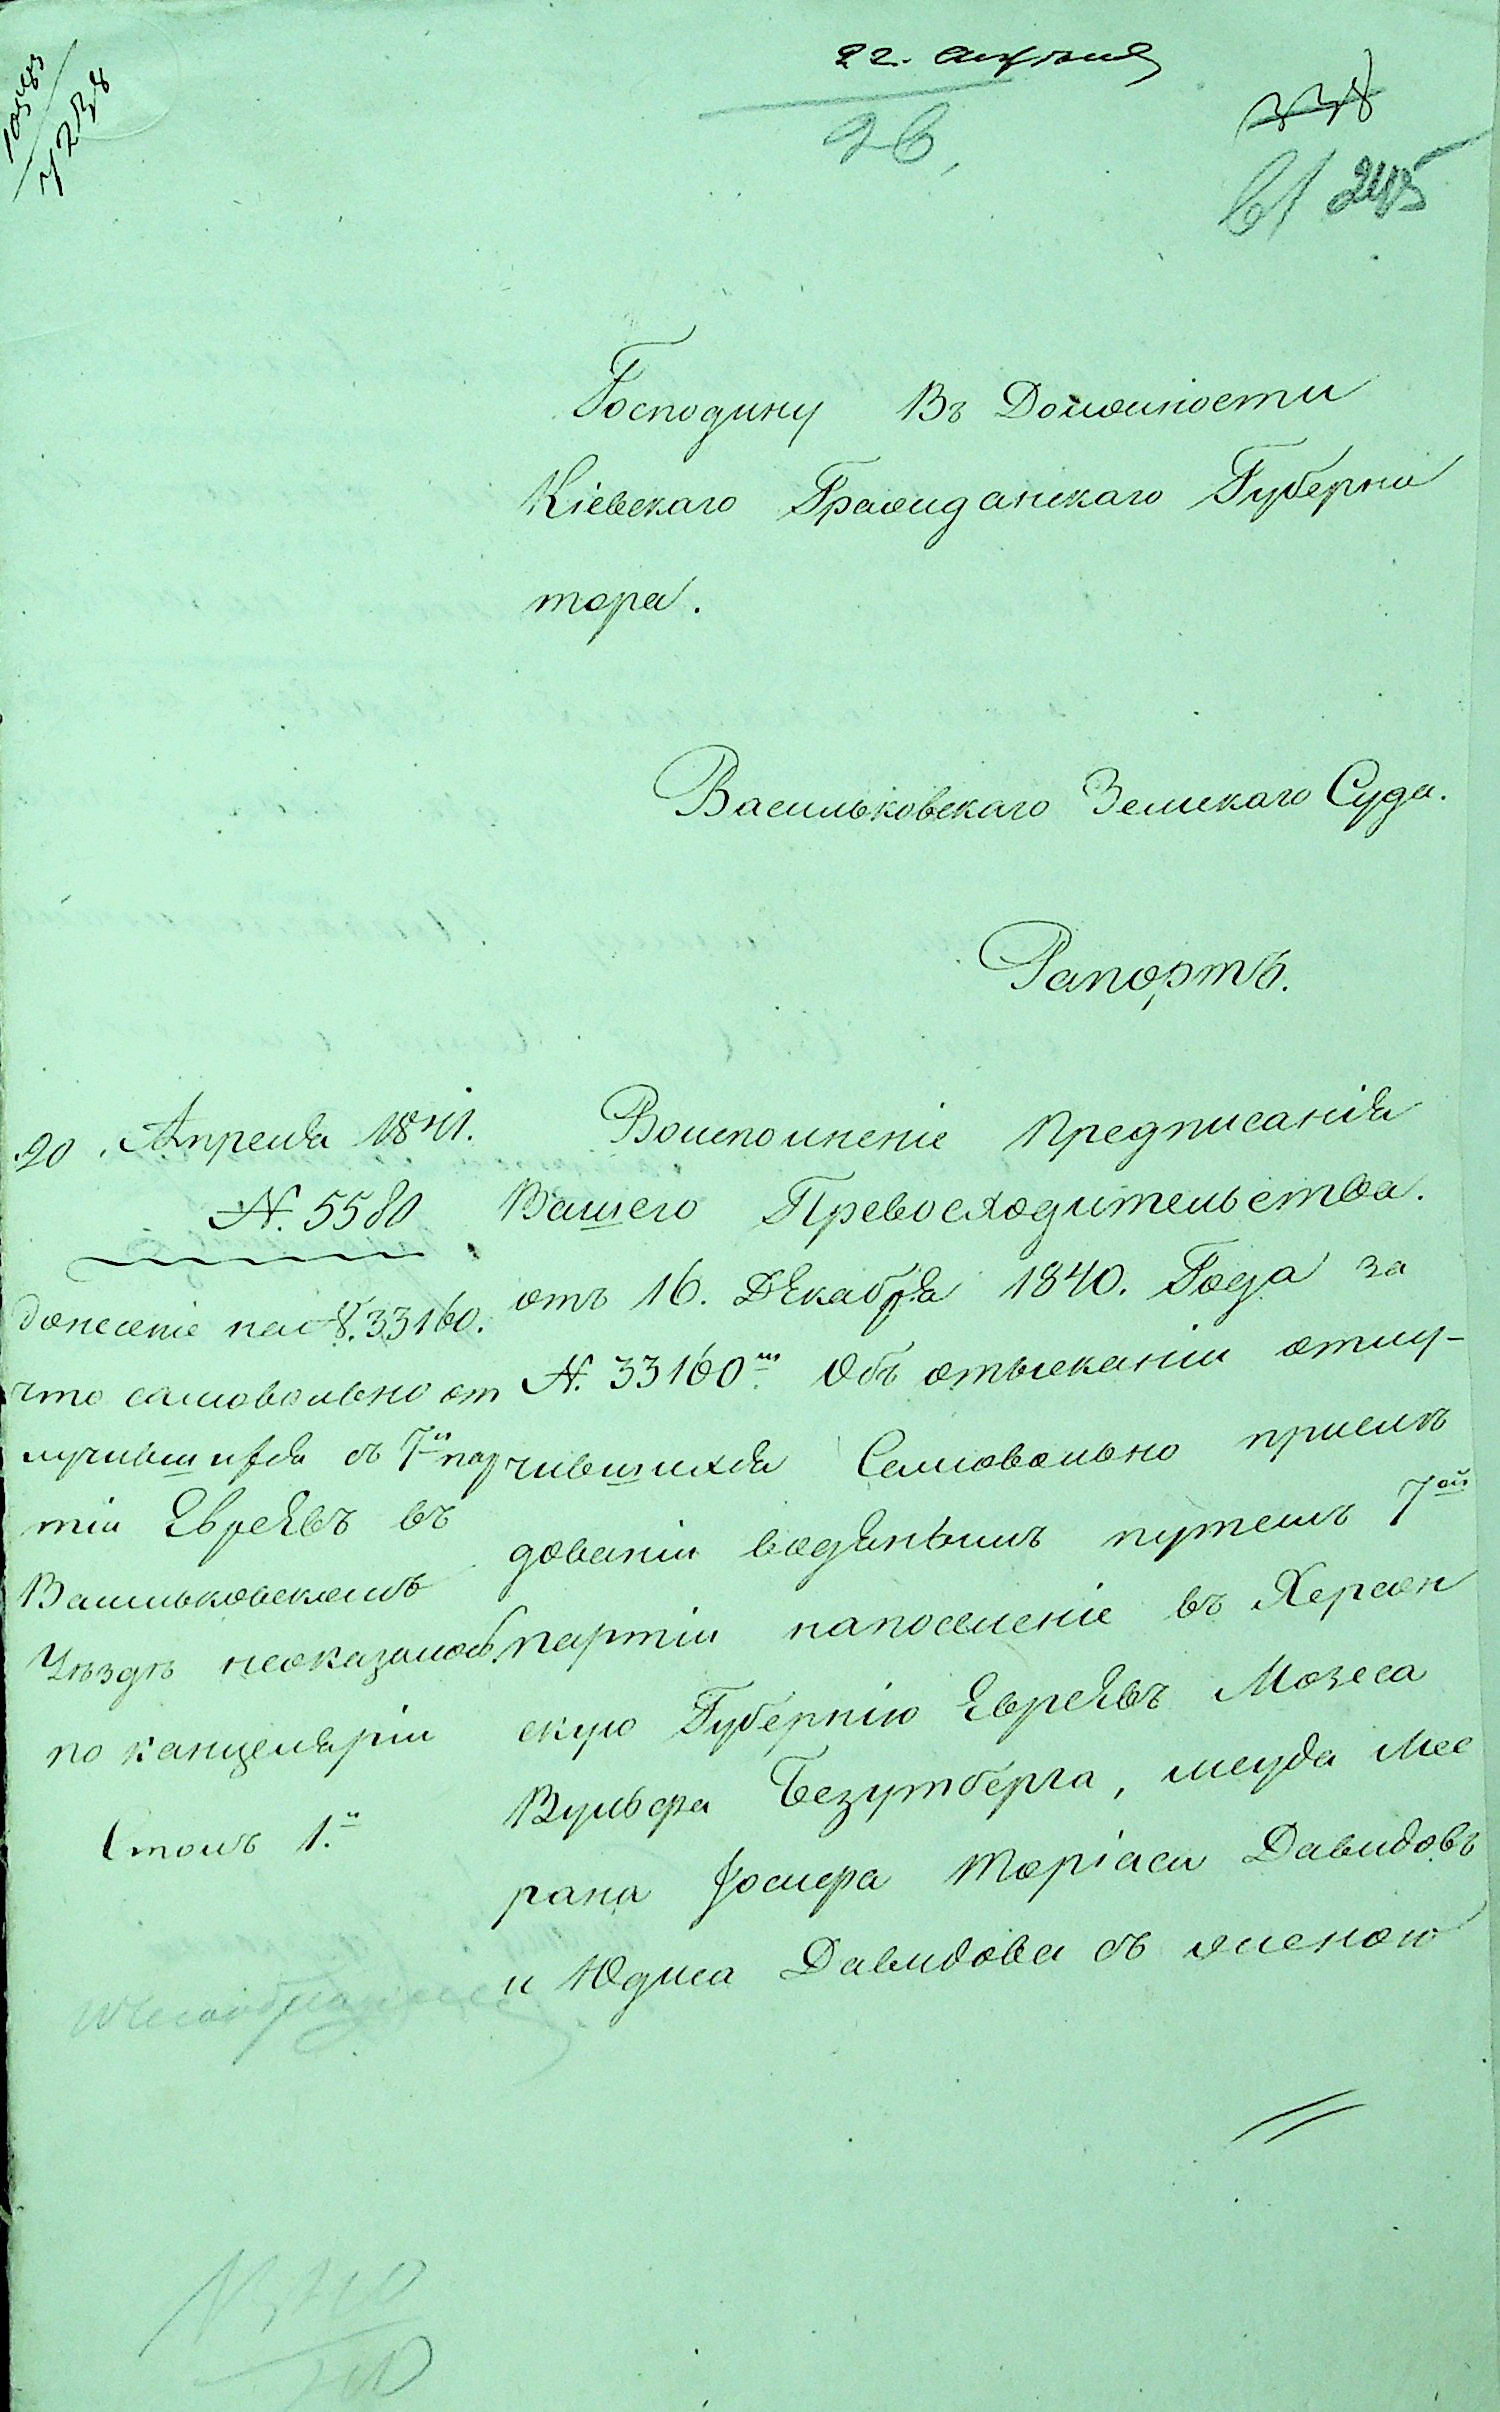 22. апреля
26.
338
61 245
Господину Въ Должности
Кіевскаго Гражданскаго Губерна
тора.
Васильковскаго Земскаго Суда.
Рапортъ.
20. Апреля 1841.
N. 5580
донесеніе на N. 33160.
что самовольно от
лучившихся съ 7й пар
тіи Евреевъ въ
Васильковскомъ
Уѣздѣ неоказалось.
по канцеляріи
Столъ 1.й
Воисполненіе Предписанія
Вашего Превосходительства.
отъ 16. Декабря 1840. Года за
N. 33160м Объ отысканіи отлу-
чившихся Самовольно прислѣ
дованіи водянымъ путемъ 7ой
партіи напоселеніе въ Херсон
скую Губернію Евреевъ Мозеса
Вульфа Безутберга, Меуда Мее
рана Іосифа Торіаса Давидовъ
и Юдиса Давидова съ женою